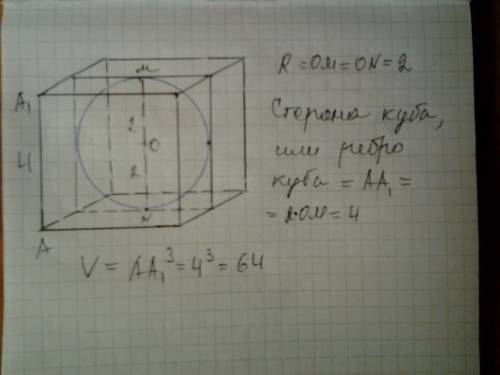 M
R = OM = ON = 2
A₁
2
O
4
2
N
A
Сторона куба,
или ребро
куба = AA₁ =
= 2·OM = 4
V = AA₁³ = 4³ = 64